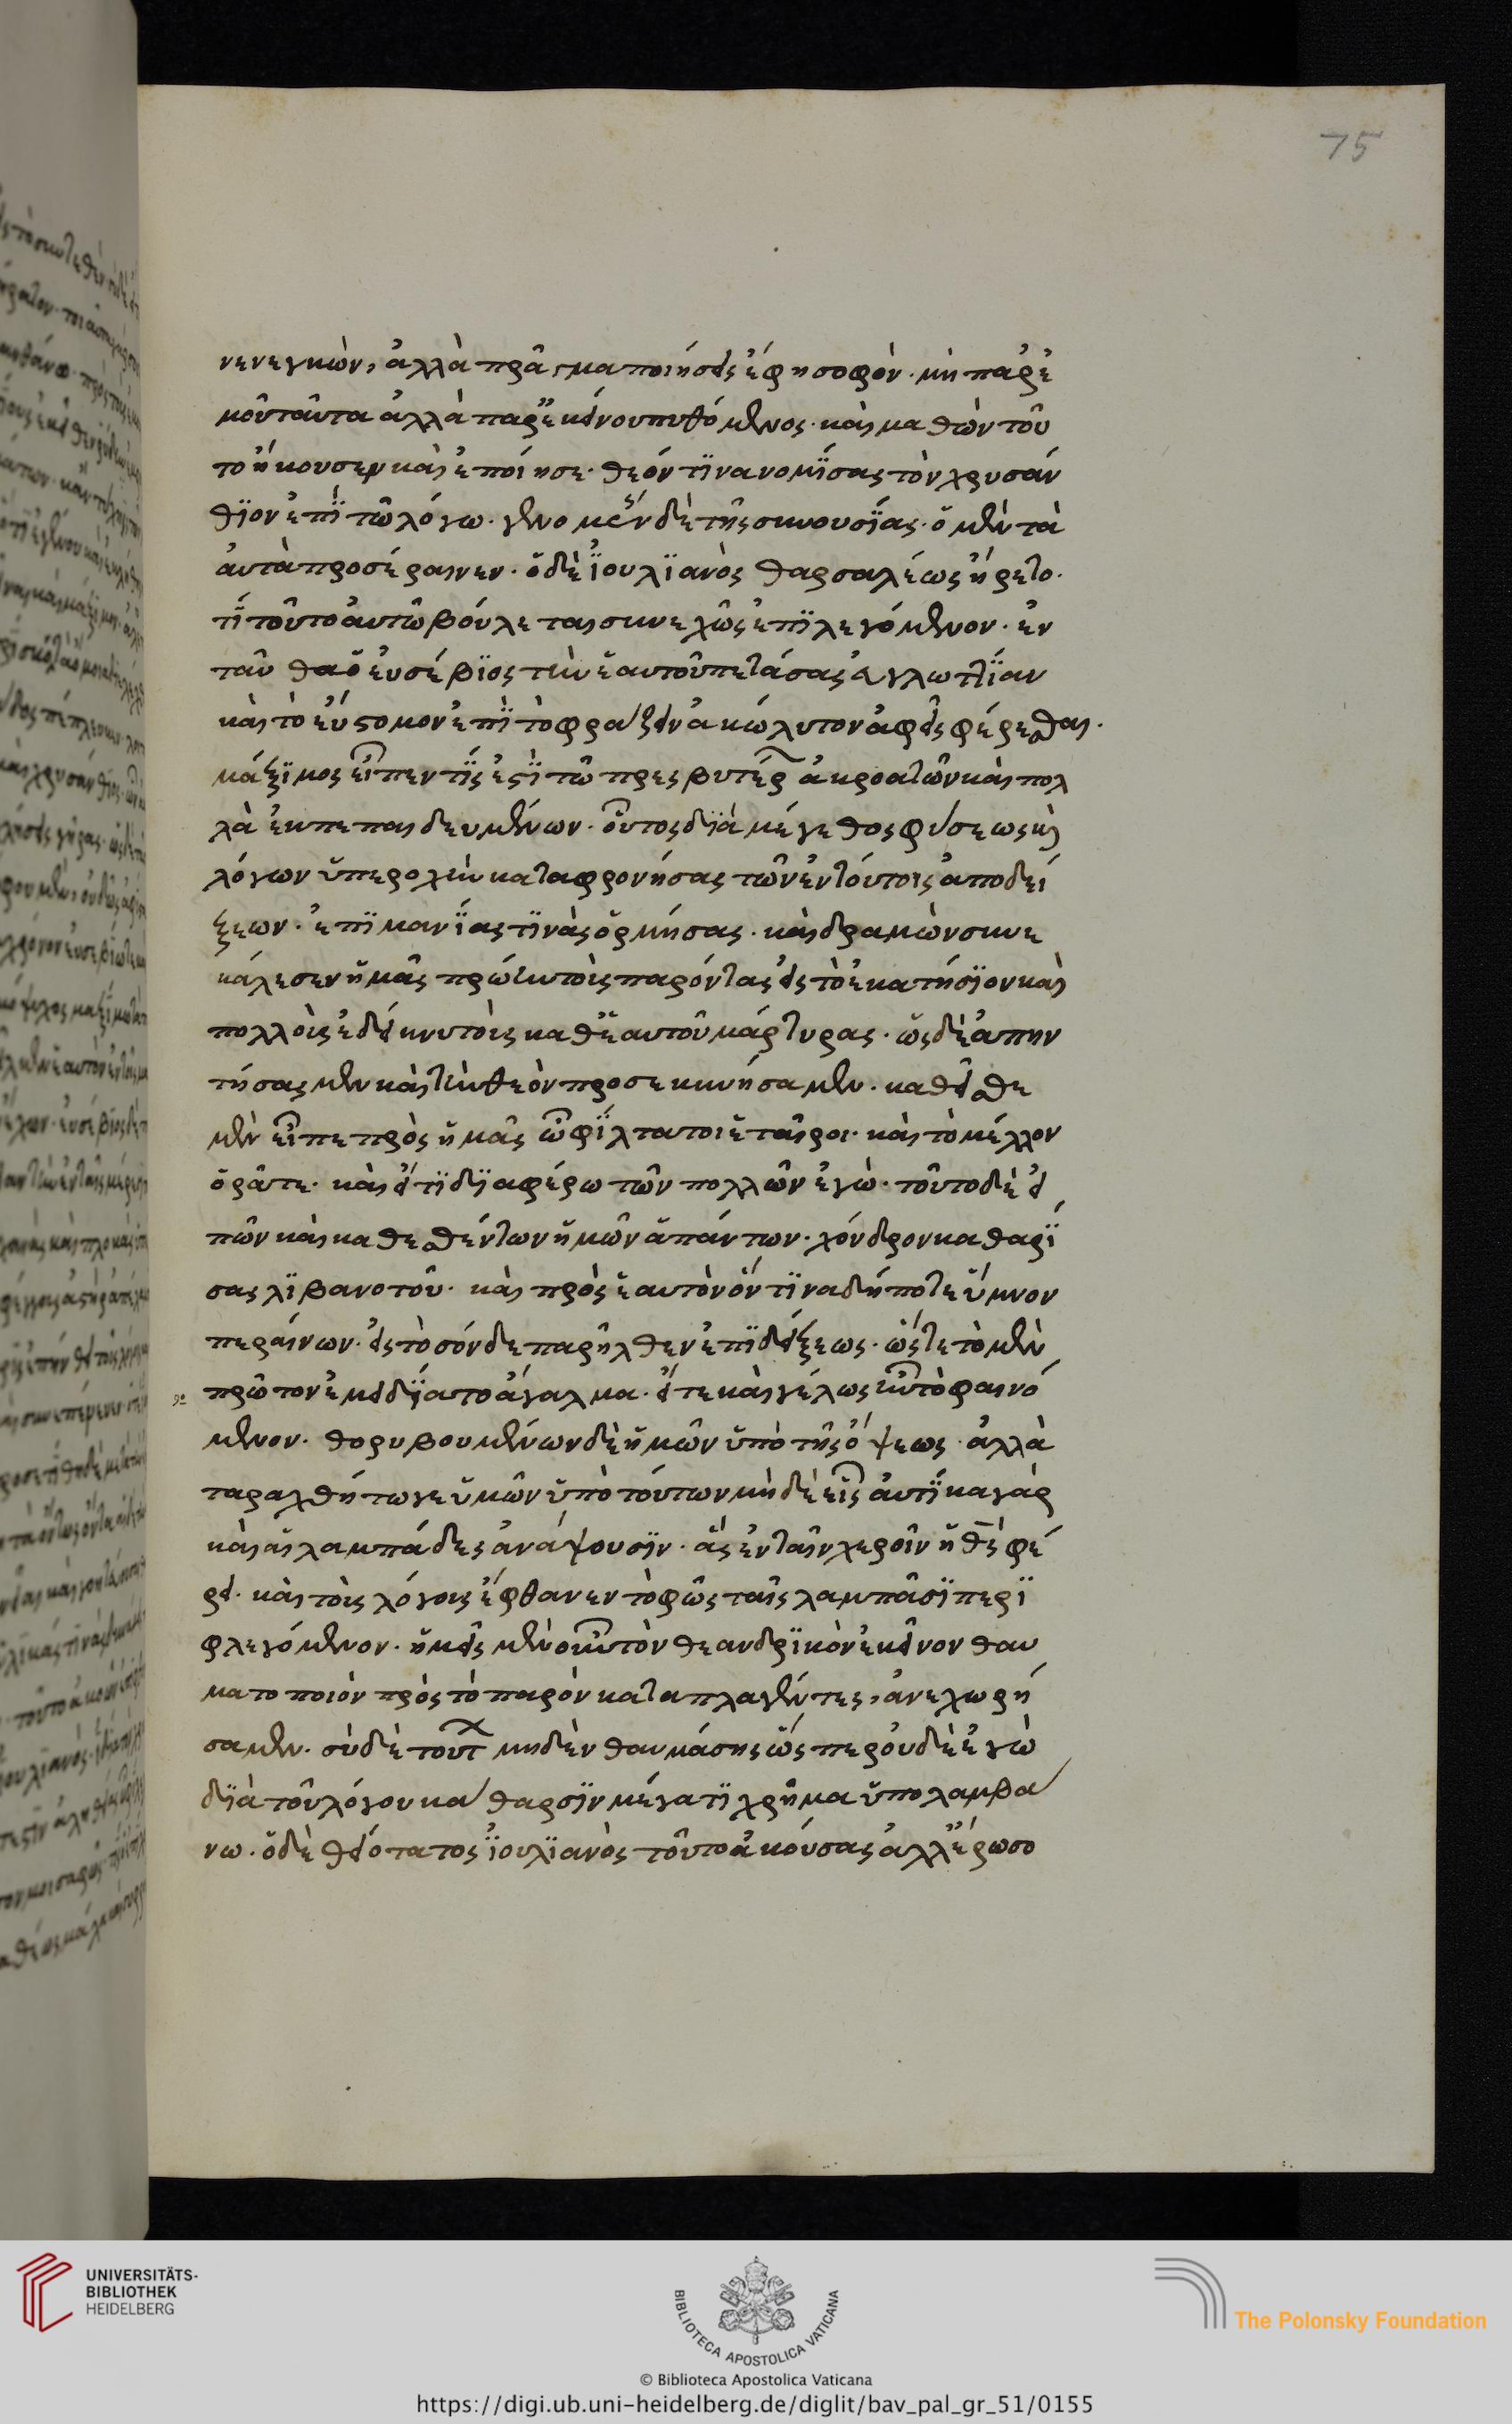 75
νενεγκὼν, ἀλλὰ πρᾶγμα ποιήσεις ἔφη σοφὸν· μὴ παρ᾽ ἐ
μοῦ ταῦτα ἀλλὰ παρ᾽ ἐκείνου πυθόμενος· καὶ μαθὼν τοῦ
το ἤκουσεν καὶ ἐποίησε· θεόν τϊνα νομΐσας τὸν χρυσάν
θϊον ἐπῒ τῶ λόγω· γενομένης δὲ τῆς συνουσΐας· ὁ μὲν τὰ
ἀυτὰ προσέραινεν· ὁ δὲ ϊουλϊανὸς θαρσαλέως ἤρετο·
τΐ τοῦτο ἀυτῶ βούλεται συνεχῶς ἐπϊλεγόμενον· ἐν
ταῦθα ὁ ἐυσέβϊος τὴν ἑαυτοῦ πετάσας ἐυγλωττΐαν
καὶ τὸ ἐύστομον ἐπῒ τὸ φράζειν ἀκώλυτον ἀφεὶς φέρεσθαι·
μάξϊμος εἶπεν τΐς ἐστῒ τῶν πρεσβυτέρων ἀκροατῶν καὶ πολ
λὰ ἐκπεπαιδευμένων· οὗτος δϊὰ μέγεθος φύσεως κὶ
λόγων ὑπεροχὴν καταφρονήσας τῶν ἐν τόυτοις ἀποδεί
ξεων· ἐπϊ μανΐας τϊνὰς ὁρμήσας· καὶ δραμὼν συνε
κάλεσεν ἡμᾶς πρώην τοὺς παρόντας εἰς τὸ ἑκατήσϊον καὶ
πολλοὺς ἐδείκνυ τοὺς καθ᾽ ἑαυτοῦ μάρτυρας· ὡς δὲ ἀπην
τήσαμεν καὶ τὴν θεὸν προσεκυνήσαμεν· καθεῖσθε
μὲν εἶπε πρὸς ἡμᾶς ὦ φΐλτατοι ἑταῖροι· καὶ τὸ μέλλον
ὁρᾶτε· καὶ εἴ τϊ δϊαφέρω τῶν πολλῶν ἐγὼ· τοῦτο δὲ εἰ
πῶν καὶ καθεσθέντων ἡμῶν ἁπάντων· χόνδρον καθαρΐ
σας λϊβανοτοῦ· καὶ πρὸς ἑαυτὸν ὅν τϊνα δήποτε ὕμνον
περαίνων· εἰς τὸ σόνδε παρῆλθεν ἐπϊδείξεως· ὥστε τὸ μὲν
πρῶτον ἐμειδΐα τὸ ἄγαλμα· εἴτε καὶ γέλως ἦν τὸ φαινό
μενον· θορυβουμένων δὲ ἡμῶν ὑπὸ τῆς ὄψεως· ἀλλὰ
ταραχθήτω γε ὑμῶν ὑπὸ τόυτων μὴ δὲ εἷς ἀυτΐκα γὰρ
καὶ αἱ λαμπάδες ἀνάψουσϊν· ἃς ἐν ταῖν χεροῖν ἡ θεὸς φέ
ρει· καὶ τοὺς λόγους ἔφθανεν τὸ φῶς ταῖς λαμπᾶσϊ περϊ
φλεγόμενον· ἡμεῖς μὲν οὖν τὸν θεανδρϊκὸν ἐκεῖνον θαυ
ματοποιὸν πρὸς τὸ παρὸν καταπλαγέντες, ἀνεχωρή
σαμεν· σὺ δὲ τούτων μηδὲν θαυμάσης ὥς περ ὀυδὲ ἐγὼ
δϊὰ τοῦ λόγου κάθαρσϊν μέγα τϊ χρῆμα ὑπολαμβά
νω· ὁ δὲ θειότατος ϊουλϊανὸς τοῦτο ἀκόυσας ἀλλ᾽ ἔρωσο
UNIVERSITÄTS-
BIBLIOTHEK
HEIDELBERG
BIBLIOTECA APOSTOLICA VATICANA
The Polonsky Foundation
© Biblioteca Apostolica Vaticana
https://digi.ub.uni-heidelberg.de/diglit/bav_pal_gr_51/0155